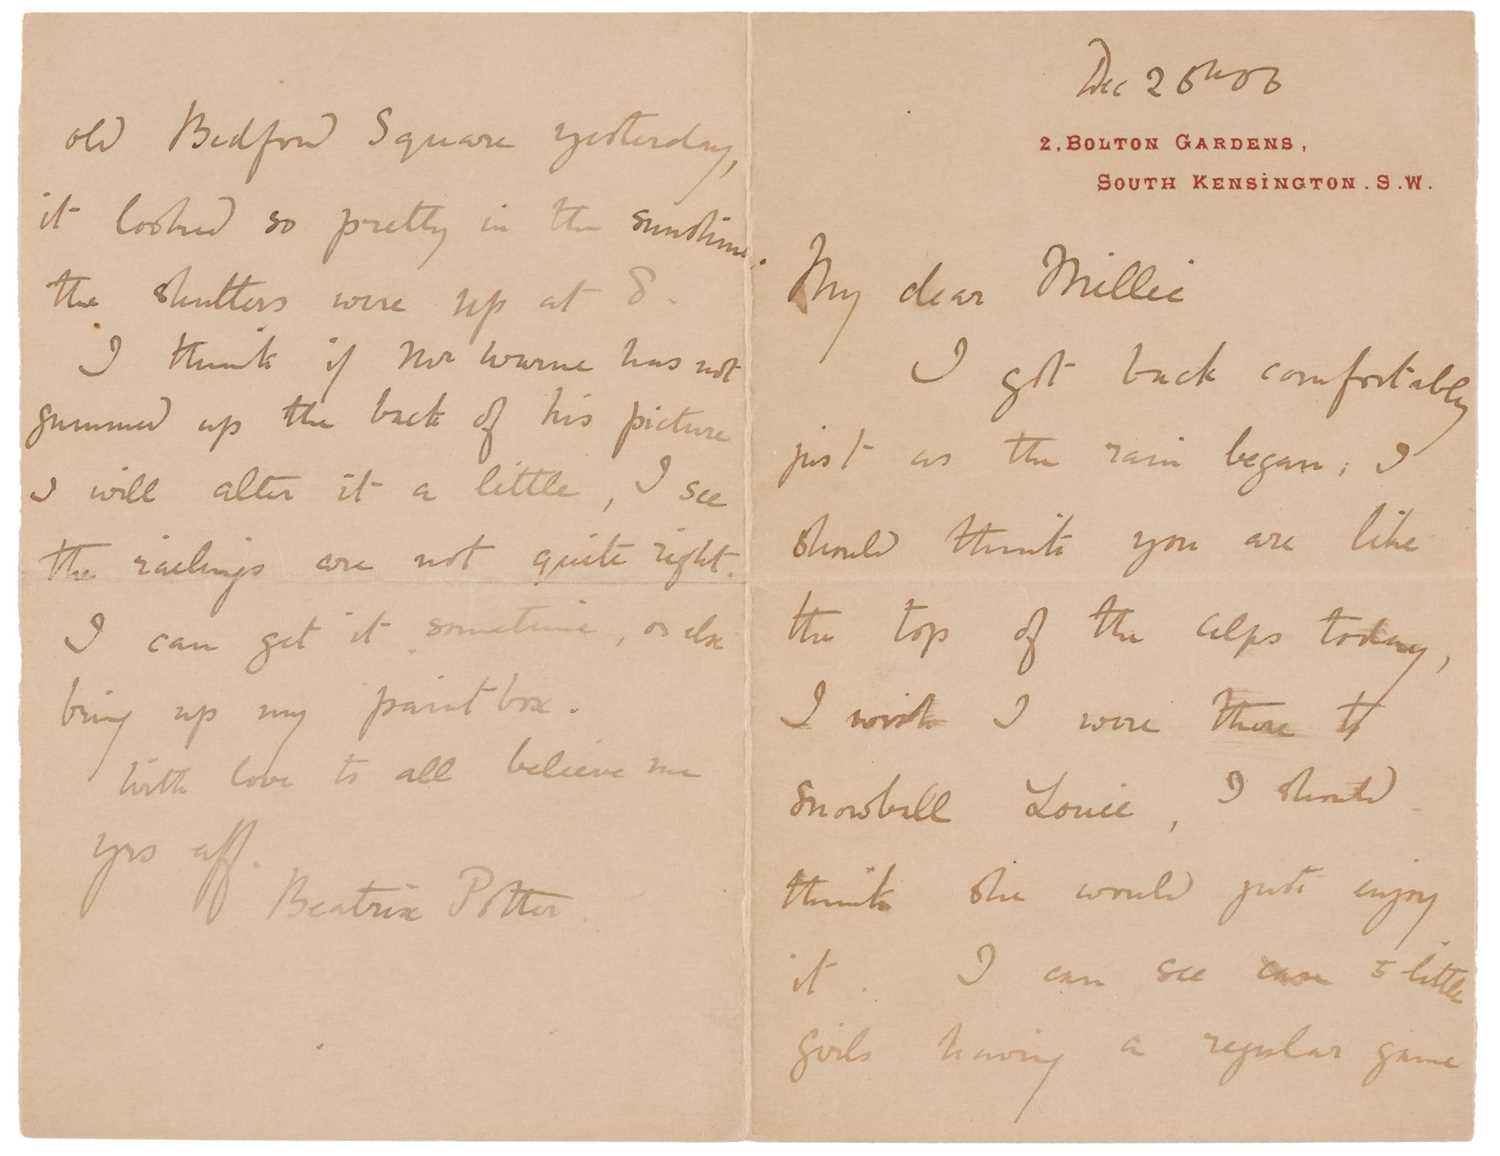 Dec 26th 06
2, BOLTON GARDENS,
SOUTH KENSINGTON. S.W.
My dear Millie
I got back comfortably
just as the rain began; I
should think you are like
the top of the alps today,
I wish I were there to
snowball Louie, I should
think she would just enjoy
it. I can see 5 little
girls having a regular game
old Bedford Square yesterday,
it looked so pretty in the sunshine;
the shutters were up at 8.
I think if Mr Warne has not
gummed up the back of his picture
I will alter it a little, I see
the railings are not quite right.
I can get it sometime, or else
bring up my paint box.
With love to all believe me
yrs aff.
Beatrix Potter